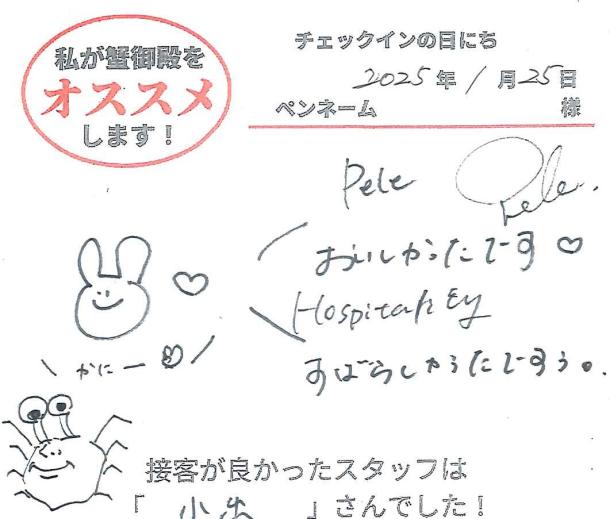 私が蟹御殿を
オススメ
します！
チェックインの日にち
2025年 1月25日
ペンネーム 様
Pele Pele.
おいしかったでーす♡
Hospitality
すばらしかったでーすぅ。
かにー
接客が良かったスタッフは
「小出」さんでした！